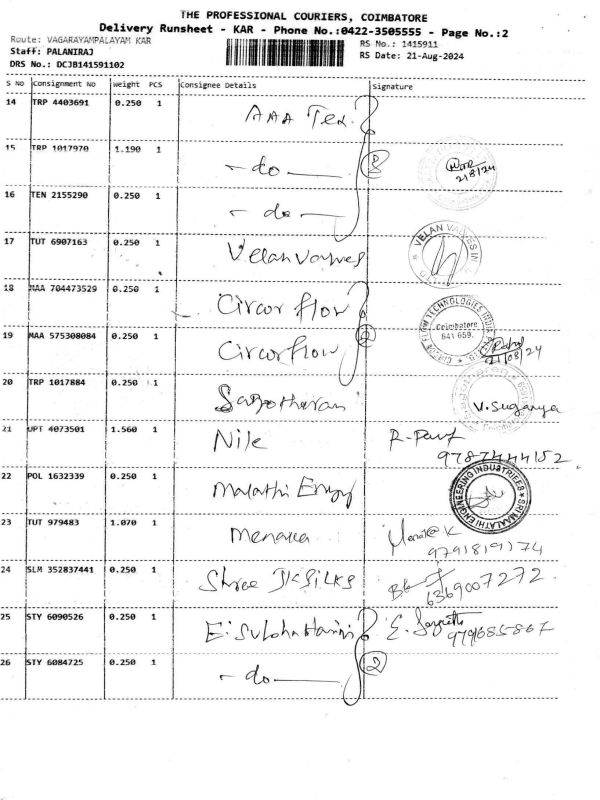 THE PROFESSIONAL COURIERS, COIMBATORE
Delivery Runsheet - KAR - Phone No.:0422-3505555 - Page No.:2
Route: VAGARAYAMPALAYAM KAR
RS No.: 1415911
Staff: PALANIRAJ
RS Date: 21-Aug-2024
DRS No.: DCJB141591102
S No Consignment No Weight PCS Consignee Details Signature
14 TRP 4403691 0.250 1 AAA Tex.
15 TRP 1017970 1.190 1 - do - 3 21/8/24
16 TEN 2155290 0.250 1 - do -
17 TUT 6907163 0.250 1 Velan Valves VELAN VALVES
18 MAA 704473529 0.250 1 Circor flow
CIRCOR FLOW TECHNOLOGIES INDIA Coimbatore 641 659.
19 MAA 575308084 0.250 1 Circorflow 2 21/08/24
20 TRP 1017884 0.250 1 V. Suganya
21 UPT 4073501 1.560 1 Nile
9787444152
22 POL 1632339 0.250 1 Malathi Engg
SRI MAALATHI ENGINEERING INDUSTRIEES
23 TUT 979483 1.070 1 Menaka
9791819174
24 SLM 352837441 0.250 1 Shree JK SILKS
6369007272
25 STY 6090526 0.250 1 E.
9791685867
26 STY 6084725 0.250 1 - do - 2